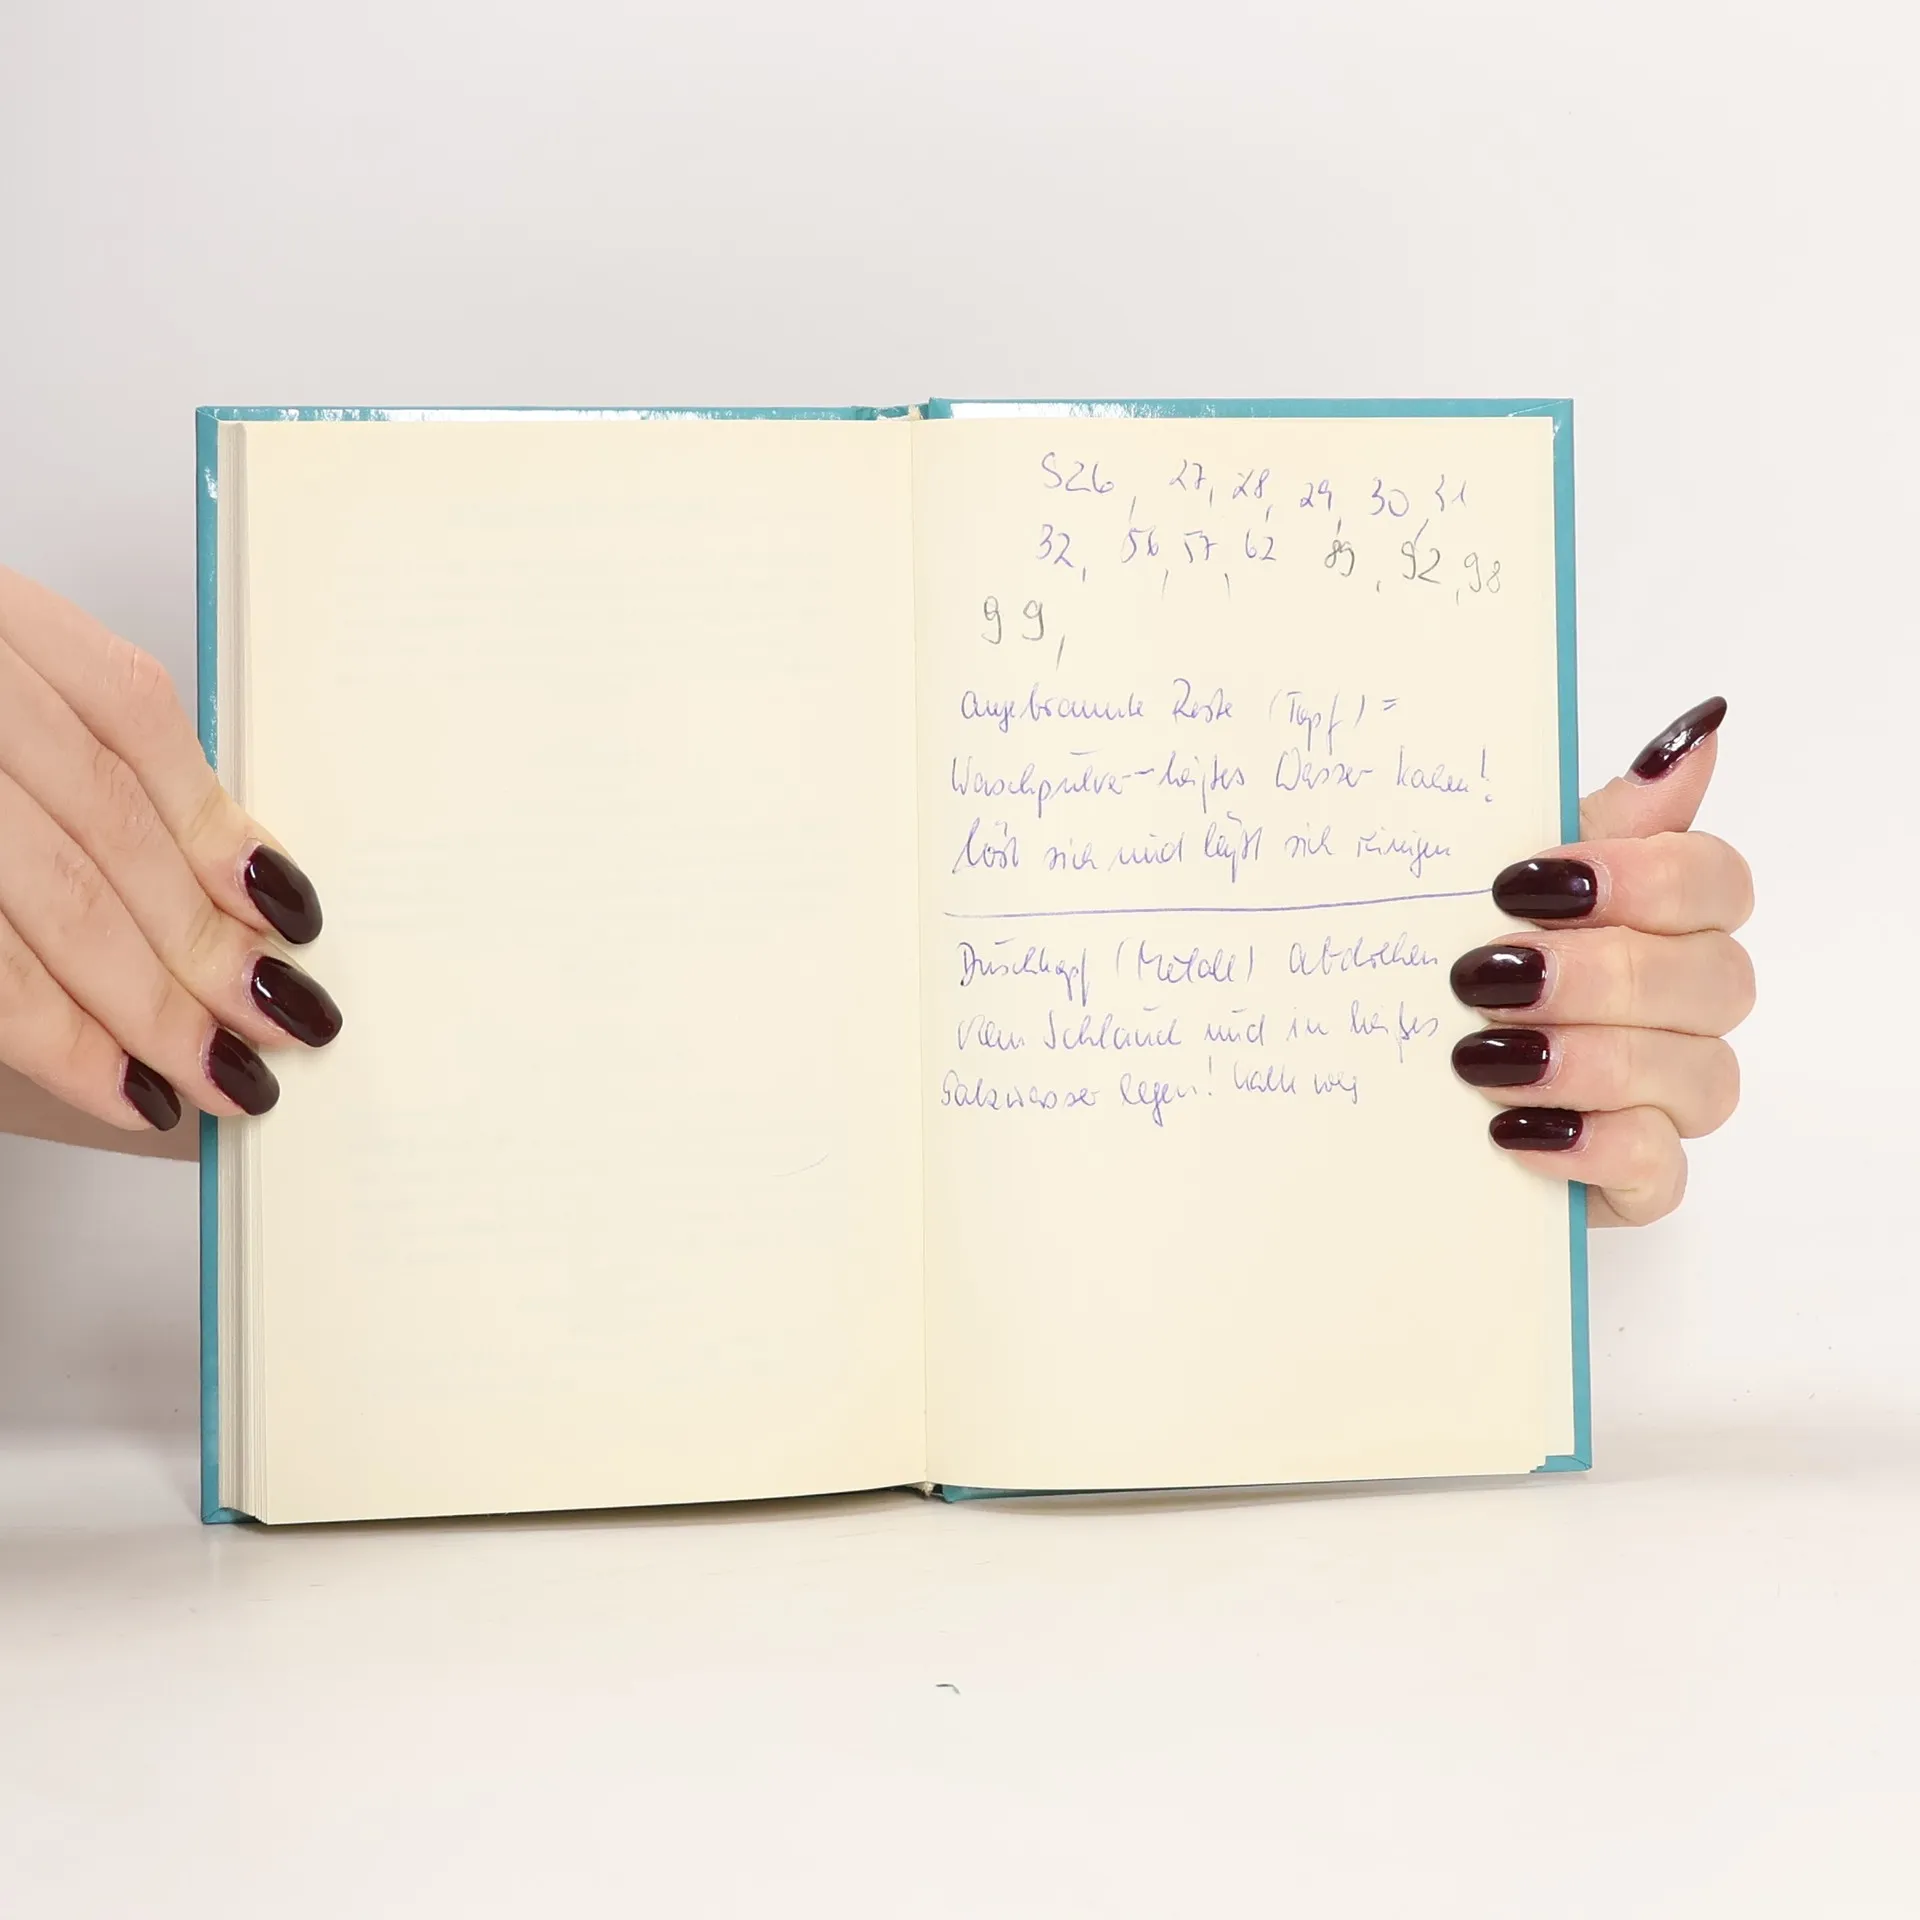 S 26, 27, 28, 29, 30, 31
32, 56, 57, 62 89, 92, 98
99,
angebrannte Reste (Topf) =
Waschpulver – heißes Wasser kochen!
löst sich und läßt sich reinigen
Duschkopf (Metall) abdrehen
vom Schlauch und in heißes
Salzwasser legen! Kalk weg